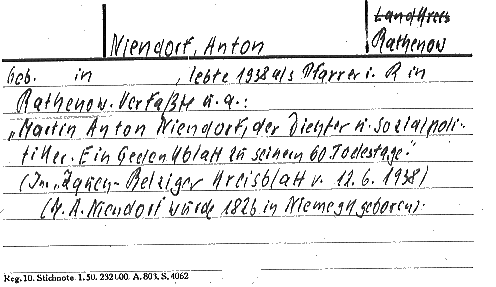 Landkreis
Niendorf, Anton Rathenow
Geb. in , lebte 1938 als Pfarrer i. R in
Rathenow. Verfaßte u. a.:
„Martin Anton Niendorf, der Dichter u. Sozialpoli-
tiker. Ein Gedenkblatt zu seinem 60 Todestage."
(In „Zauch-Belziger Kreisblatt v. 12.6.1938)
(M. A. Niendorf wurde 1826 in Niemegk geboren).
Reg. 10. Stichnote 1. 50. 2321.00. A. 803. S. 4062